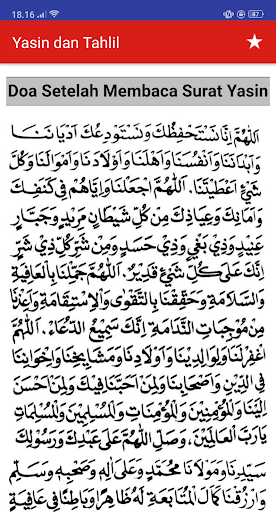 18.16
47
Yasin dan Tahlil
Doa Setelah Membaca Surat Yasin
اَللّٰهُمَّ اِنَّا نَسْتَحْفِظُكَ وَنَسْتَوْدِعُكَ اَدْيَانَنَا
وَاَبْدَانَنَا وَاَنْفُسَنَا وَاَهْلَنَا وَاَوْلَادَنَا وَاَمْوَالَنَا وَكُلَّ
شَيْءٍ اَعْطَيْتَنَا. اَللّٰهُمَّ اجْعَلْنَا وَاِيَّاهُمْ فِيْ كَنَفِكَ
وَاَمَانِكَ وَعِيَاذِكَ مِنْ كُلِّ شَيْطَانٍ مَرِيْدٍ وَجَبَّارٍ
عَنِيْدٍ وَذِيْ بَغْيٍ وَذِيْ حَسَدٍ وَمِنْ شَرِّ كُلِّ ذِيْ شَرٍّ
اِنَّكَ عَلَى كُلِّ شَيْءٍ قَدِيْرٌ. اَللّٰهُمَّ جَمِّلْنَا بِالْعَافِيَةِ
وَالسَّلَامَةِ وَحَقِّقْنَا بِالتَّقْوَى وَالْاِسْتِقَامَةِ وَاَعِذْنَا
مِنْ مُوْجِبَاتِ النَّدَامَةِ اِنَّكَ سَمِيْعُ الدُّعَاءِ. اَللّٰهُمَّ
اغْفِرْلَنَا وَلِوَالِدِيْنَا وَاَوْلَادِنَا وَمَشَايِخِنَا وَاِخْوَانِنَا
فِي الدِّيْنِ وَاَصْحَابِنَا وَلِمَنْ اَحَبَّنَا فِيْكَ وَلِمَنْ اَحْسَنَ
اِلَيْنَا وَلِلْمُؤْمِنِيْنَ وَالْمُؤْمِنَاتِ وَالْمُسْلِمِيْنَ وَالْمُسْلِمَاتِ
يَارَبَّ الْعَالَمِيْنَ، وَصَلِّ اللّٰهُمَّ عَلَى عَبْدِكَ وَرَسُوْلِكَ
سَيِّدِنَا وَمَوْلَانَا مُحَمَّدٍ وَعَلَى اٰلِهِ وَصَحْبِهِ وَسَلِّمْ
وَارْزُقْنَا كَمَالَ الْمُتَابَعَةِ لَهُ ظَاهِرًا وَبَاطِنًا فِيْ عَافِيَةٍ